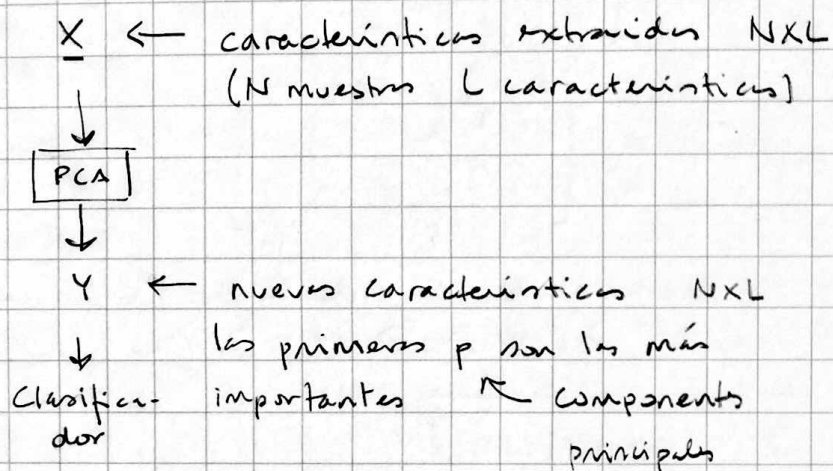 X ← características extraidas NXL
(N muestras L características)
PCA
Y ← nuevas características NXL
las primeras p son las más
importantes ↖ components
principales
Clasifica-
dor